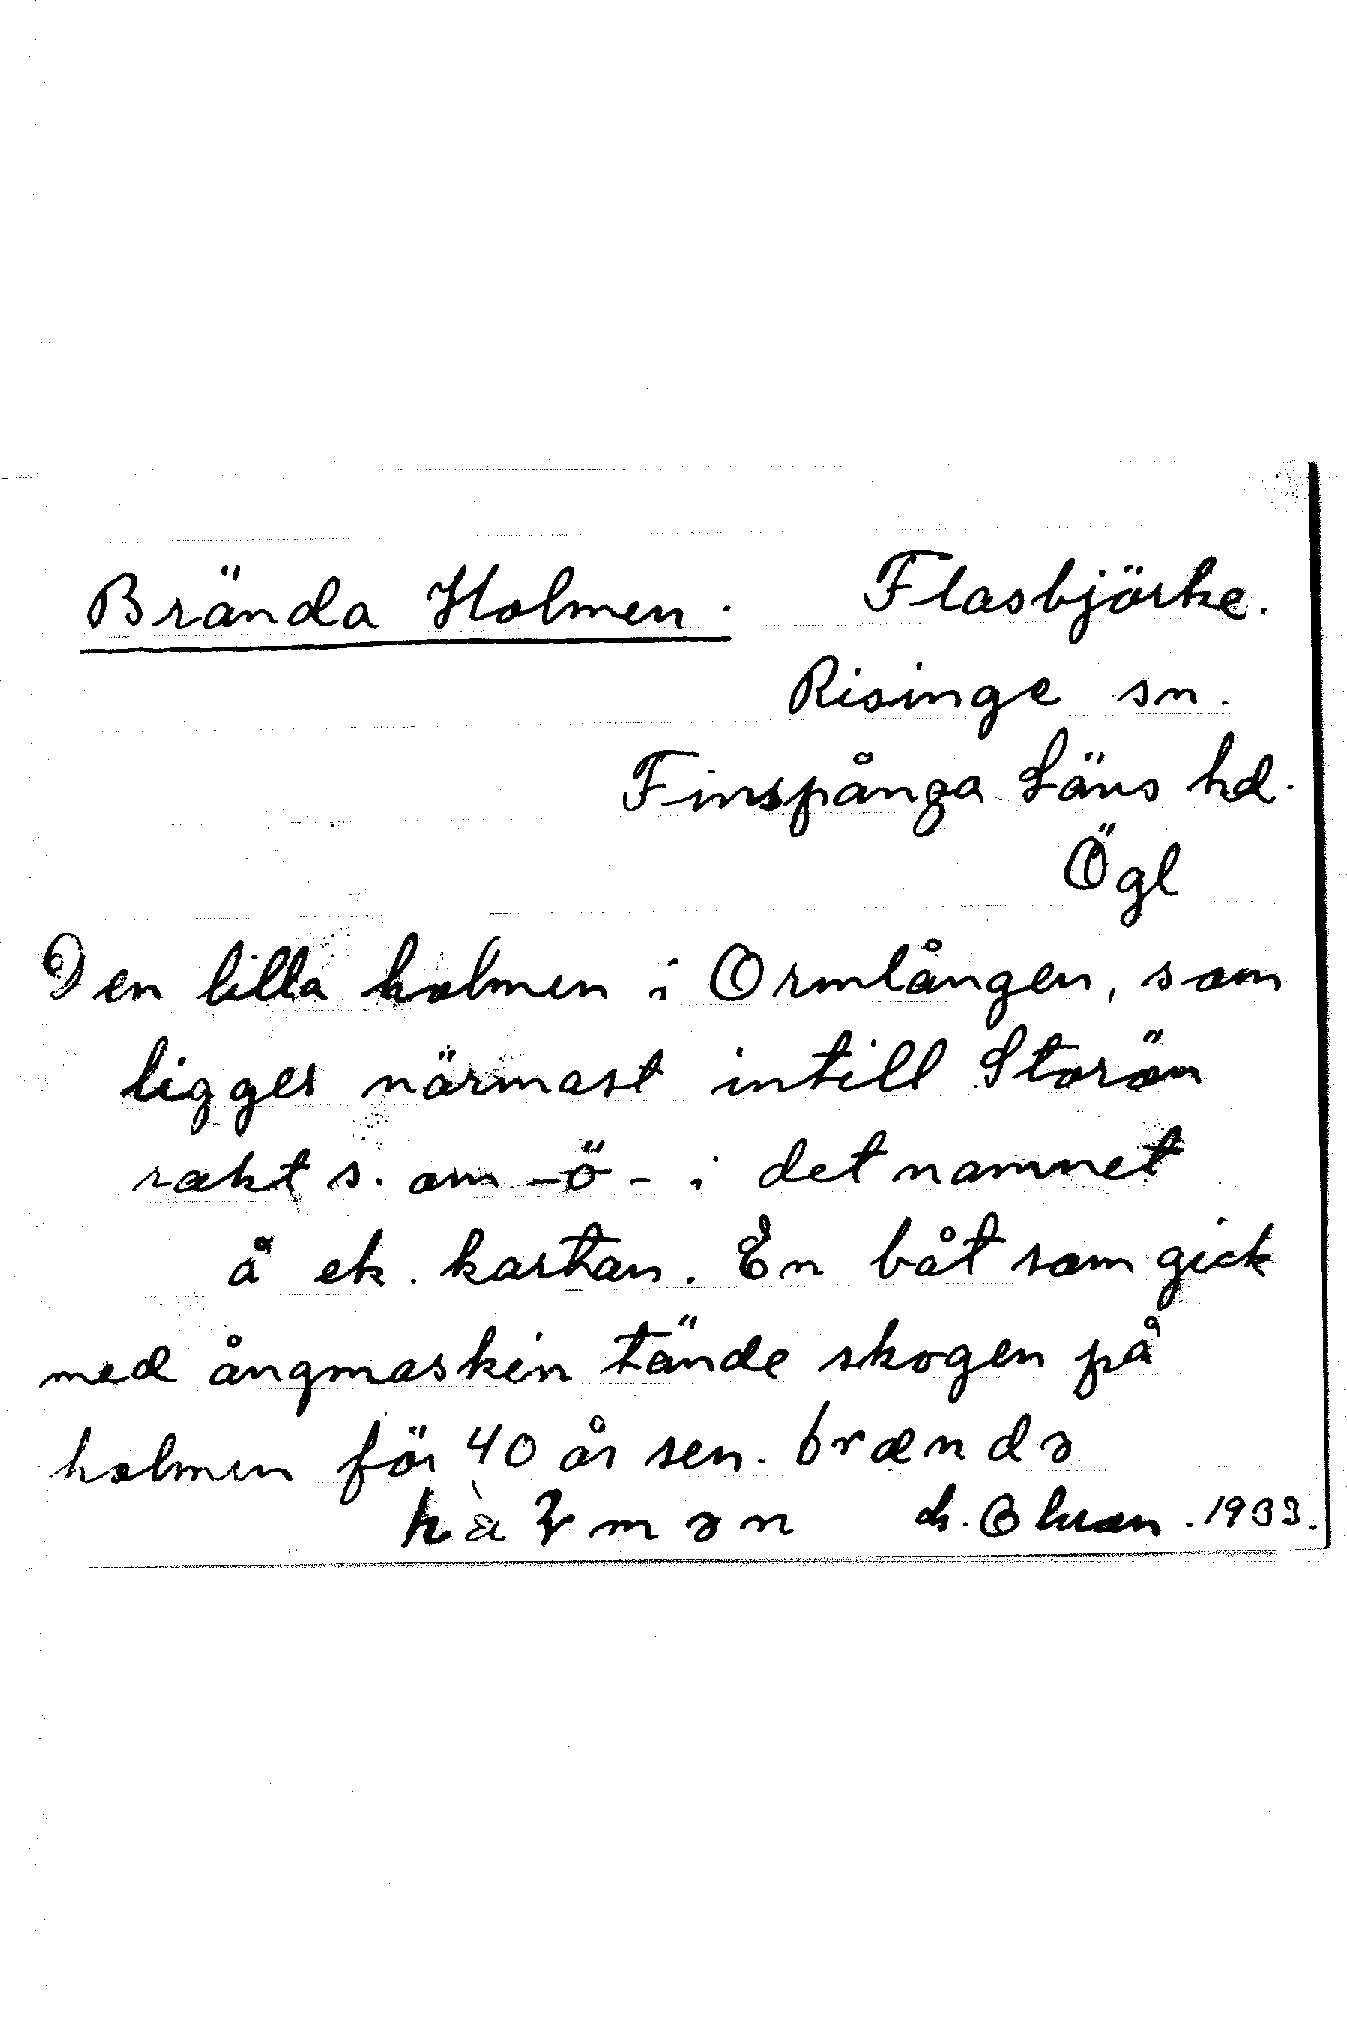 Brända Holmen. Flasbjörke.
Risinge sn.
Finspånga Läns hd.
Ögl
Den lilla holmen i Ormlången, som
ligger närmast intill Storön
rakt s. om -ö- i det namnet
å ek. kartan. En båt som gick
med ångmaskin tände skogen på
holmen för 40 år sen. brænde
1933.